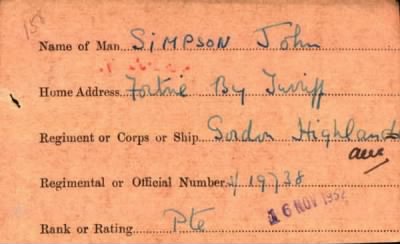 158
Name of Man SIMPSON John
Home Address Fortrie By Turriff
Regiment or Corps or Ship Gordon Highland
Regimental or Official Number 19738
16 NOV 1932
Rank or Rating Pte